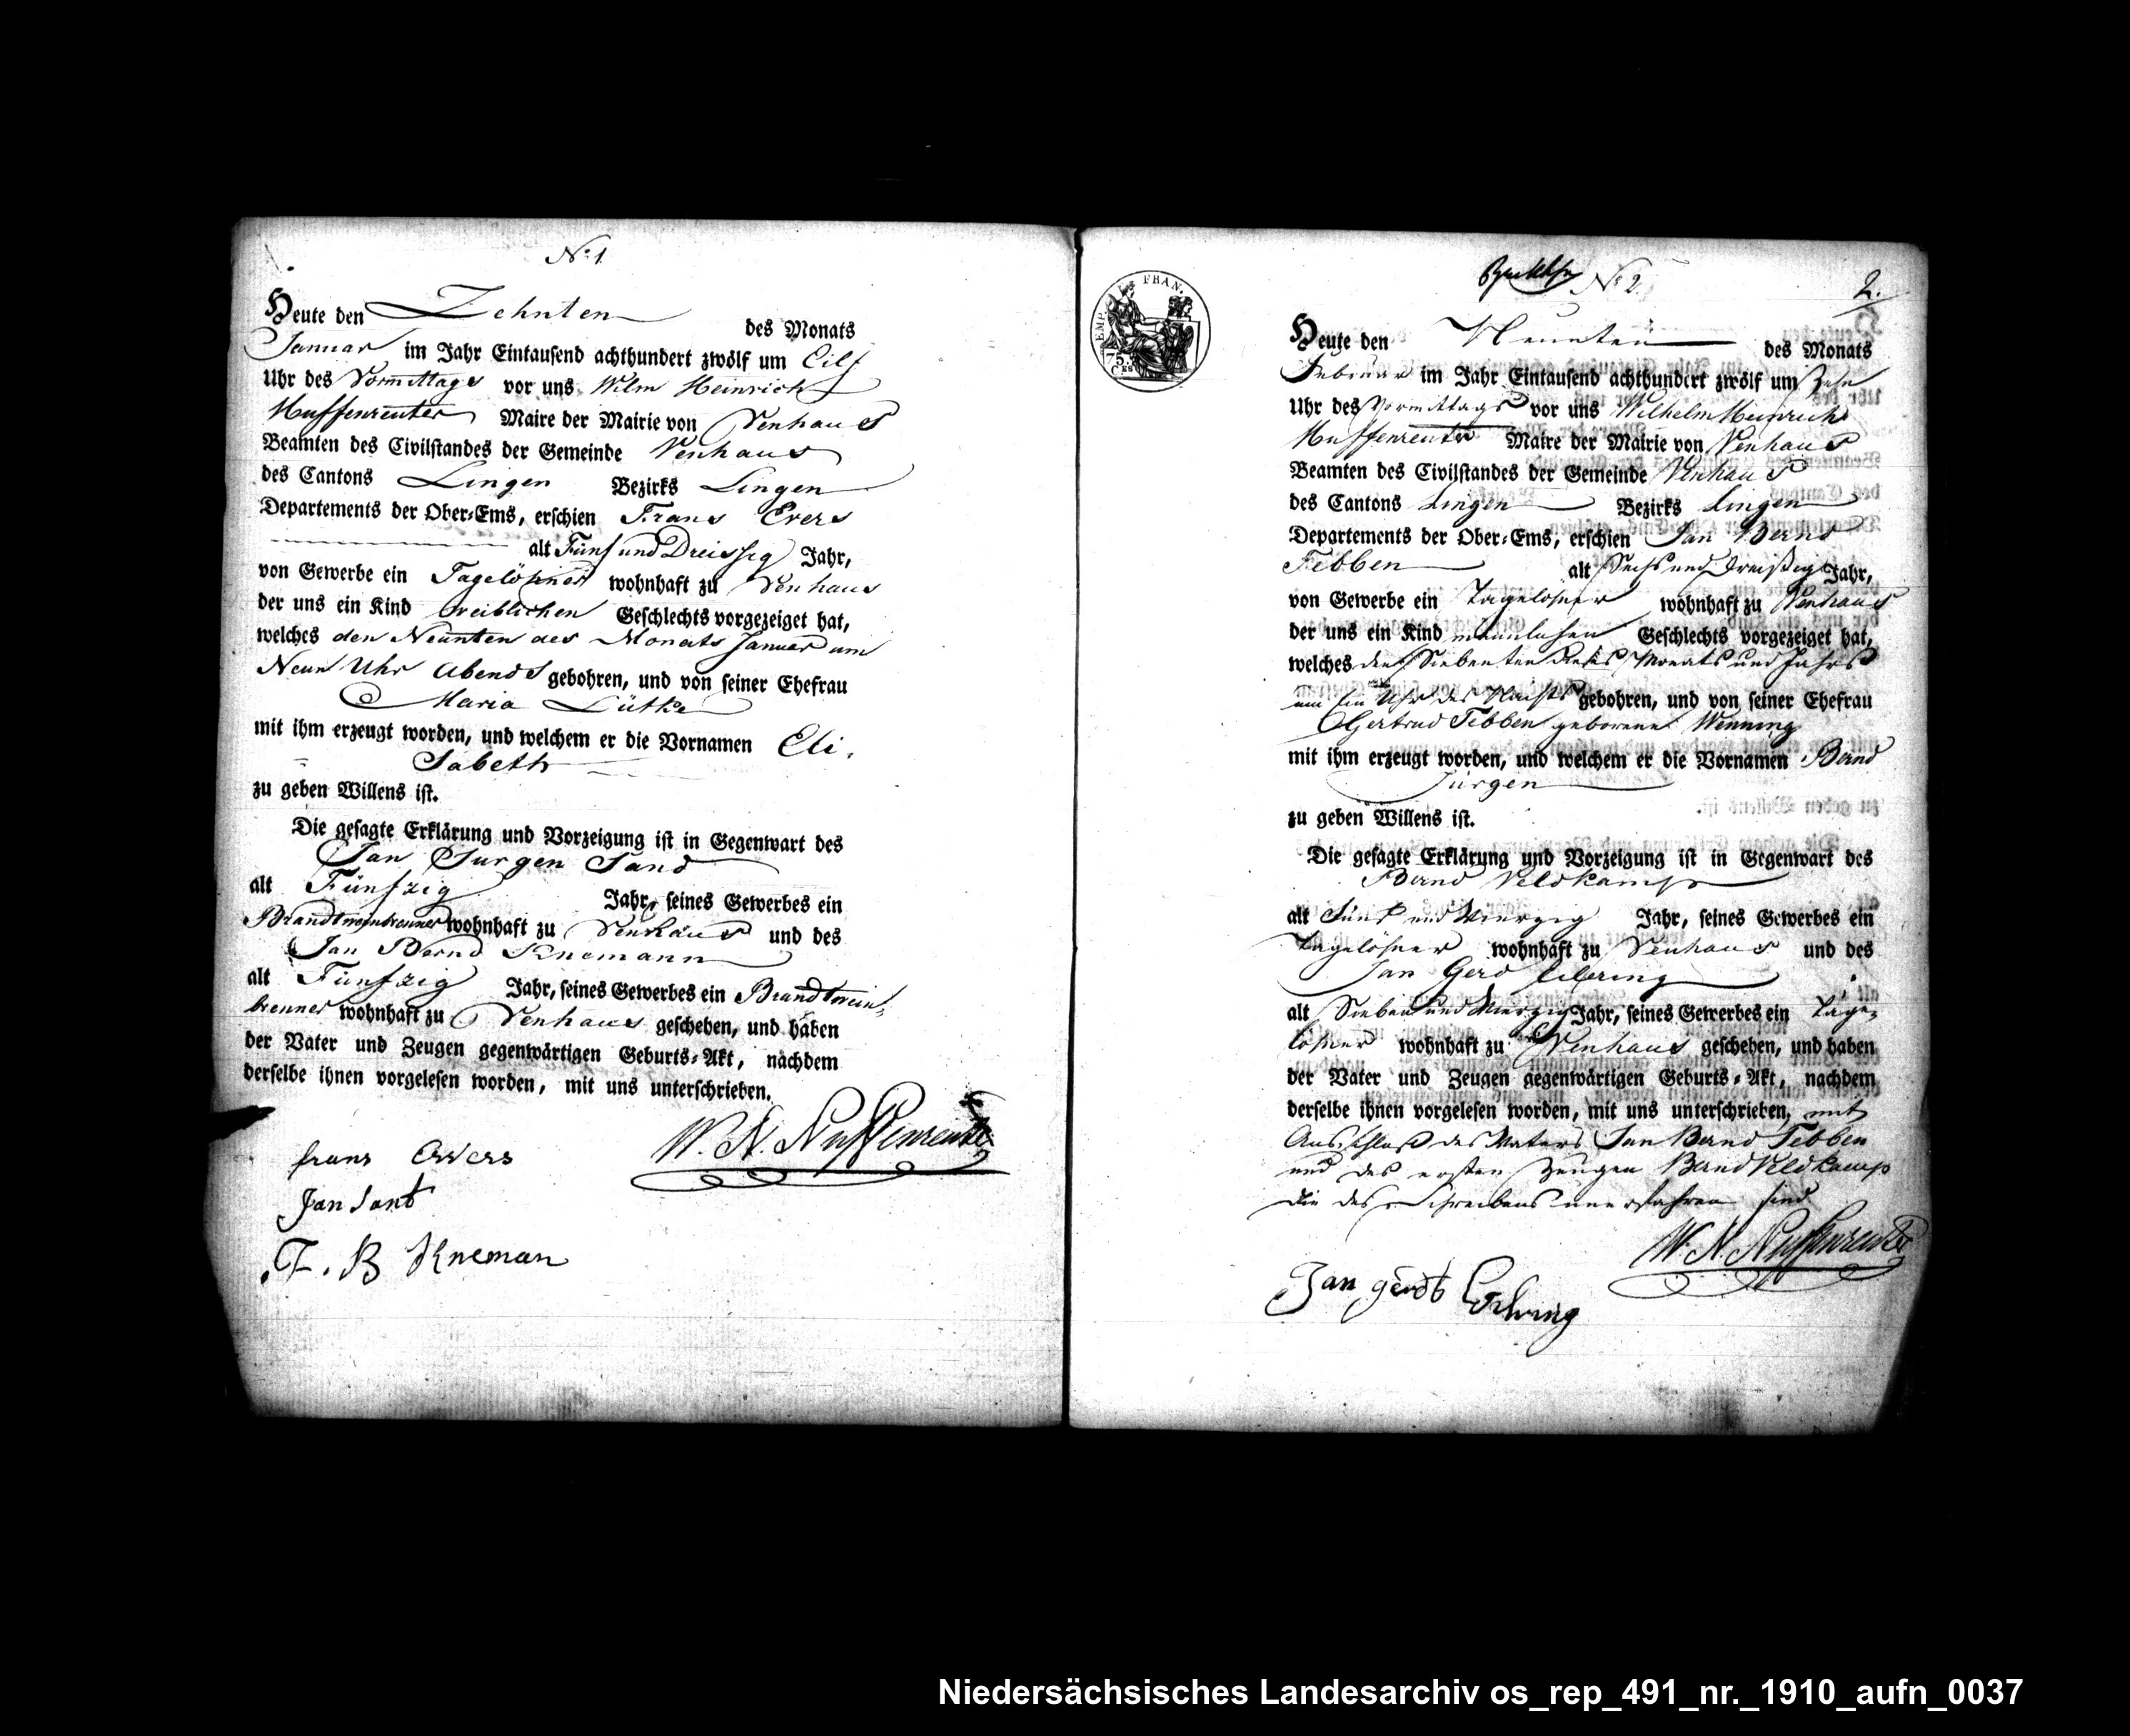 No 1
Heute den Zehnten des Monats
Januar im Jahr Eintausend achthundert zwölf um Eilf
Uhr des Vormittags vor uns Wilm Heinrich
Nuffenreuter Maire der Mairie von Venhaus
Beamten des Civilstandes der Gemeinde Venhaus
des Cantons Lingen Bezirks Lingen
Departements der Ober-Ems, erschien Frans Evers
alt Fünf und Dreissig Jahr,
von Gewerbe ein Tagelöhner wohnhaft zu Venhaus
der uns ein Kind weiblichen Geschlechts vorgezeiget hat,
welches den Neunten des Monats Januar um
Neun Uhr Abends gebohren, und von seiner Ehefrau
Maria Lütke
mit ihm erzeugt worden, und welchem er die Vornamen Eli-
Sabeth
zu geben Willens ist.
Die gesagte Erklärung und Vorzeigung ist in Gegenwart des
Jan Jurgen Sand
alt Fünfzig Jahr, seines Gewerbes ein
Brandtweinbrenner wohnhaft zu Venhaus und des
Jan Bernd Knemann
alt Fünfzig Jahr, seines Gewerbes ein Brandtwein-
brenner wohnhaft zu Venhaus geschehen, und haben
der Vater und Zeugen gegenwärtigen Geburts-Akt, nachdem
derselbe ihnen vorgelesen worden, mit uns unterschrieben.
W. H. Nuffenreuter
frans Evers
Jan Sant
J. B Kneman
EMP. FRAN.
75.
C.ES
No 2.
2.
Heute den Neunten des Monats
Februar im Jahr Eintausend achthundert zwölf um Zehn
Uhr des Vormittags vor uns Wilhelm Heinrich
Nuffenreuter Maire der Mairie von Venhaus
Beamten des Civilstandes der Gemeinde Venhaus
des Cantons Lingen Bezirks Lingen
Departements der Ober-Ems, erschien Jan Bernd
Tebben alt Sechs und Dreißig Jahr,
von Gewerbe ein Tagelöhner wohnhaft zu Venhaus
der uns ein Kind mannlichen Geschlechts vorgezeiget hat,
welches den Siebenten dieses Monats und Jahrs
um Ein Uhr des Nachts gebohren, und von seiner Ehefrau
Gertrud Tebben geborene Wenning
mit ihm erzeugt worden, und welchem er die Vornamen Bernd
Jürgen
zu geben Willens ist.
Die gesagte Erklärung und Vorzeigung ist in Gegenwart des
Bernd Veldkamp
alt Fünf und Vierzig Jahr, seines Gewerbes ein
Tagelöhner wohnhaft zu Venhaus und des
Jan Gerd
alt Sieben und Vierzig Jahr, seines Gewerbes ein Tage-
löhner wohnhaft zu Venhaus geschehen, und haben
der Vater und Zeugen gegenwärtigen Geburts-Akt, nachdem
derselbe ihnen vorgelesen worden, mit uns unterschrieben, mit
Ausschluß des Vaters Jan Bernd Tebben
und des ersten Zeugen Bernd Veldkamp
die des Schreibens unerfahren sind
W. H. Nuffenreuter
Jan gerdt
Niedersächsisches Landesarchiv os_rep_491_nr._1910_aufn_0037